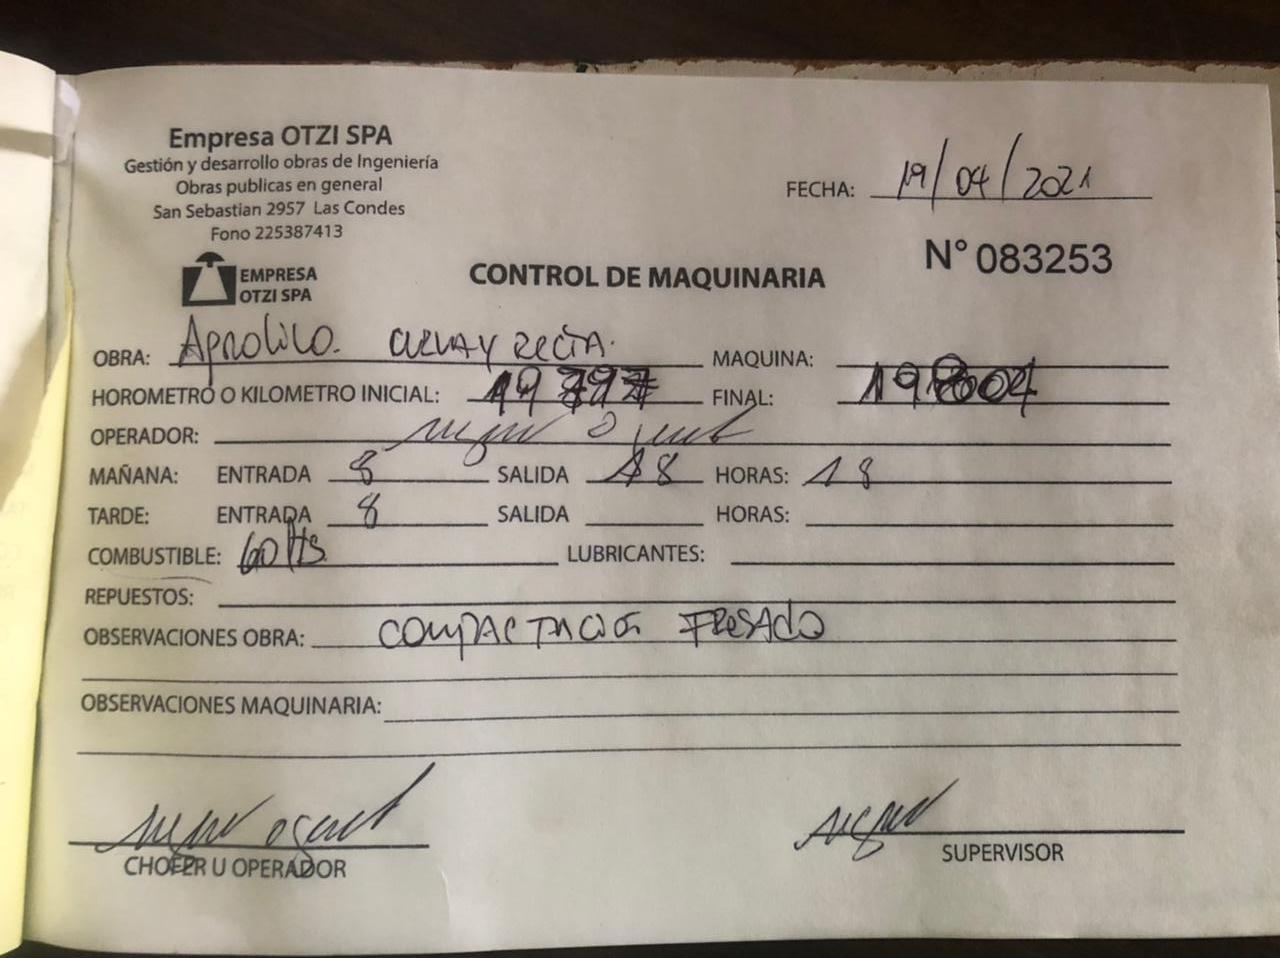 Empresa OTZI SPA
Gestión y desarrollo obras de Ingeniería
Obras publicas en general
San Sebastian 2957 Las Condes
Fono 225387413
FECHA: 19/04/2021
N° 083253
EMPRESA
OTZI SPA
CONTROL DE MAQUINARIA
OBRA: CURVA Y RECTA. MAQUINA:
HOROMETRO O KILOMETRO INICIAL: 19797 FINAL: 19804
OPERADOR:
MAÑANA: ENTRADA 8 SALIDA 18 HORAS: 18
TARDE: ENTRADA 8 SALIDA HORAS:
COMBUSTIBLE: 60 lts LUBRICANTES:
REPUESTOS:
OBSERVACIONES OBRA: COMPACTACION FRESADO
OBSERVACIONES MAQUINARIA:
CHOFER U OPERADOR
SUPERVISOR